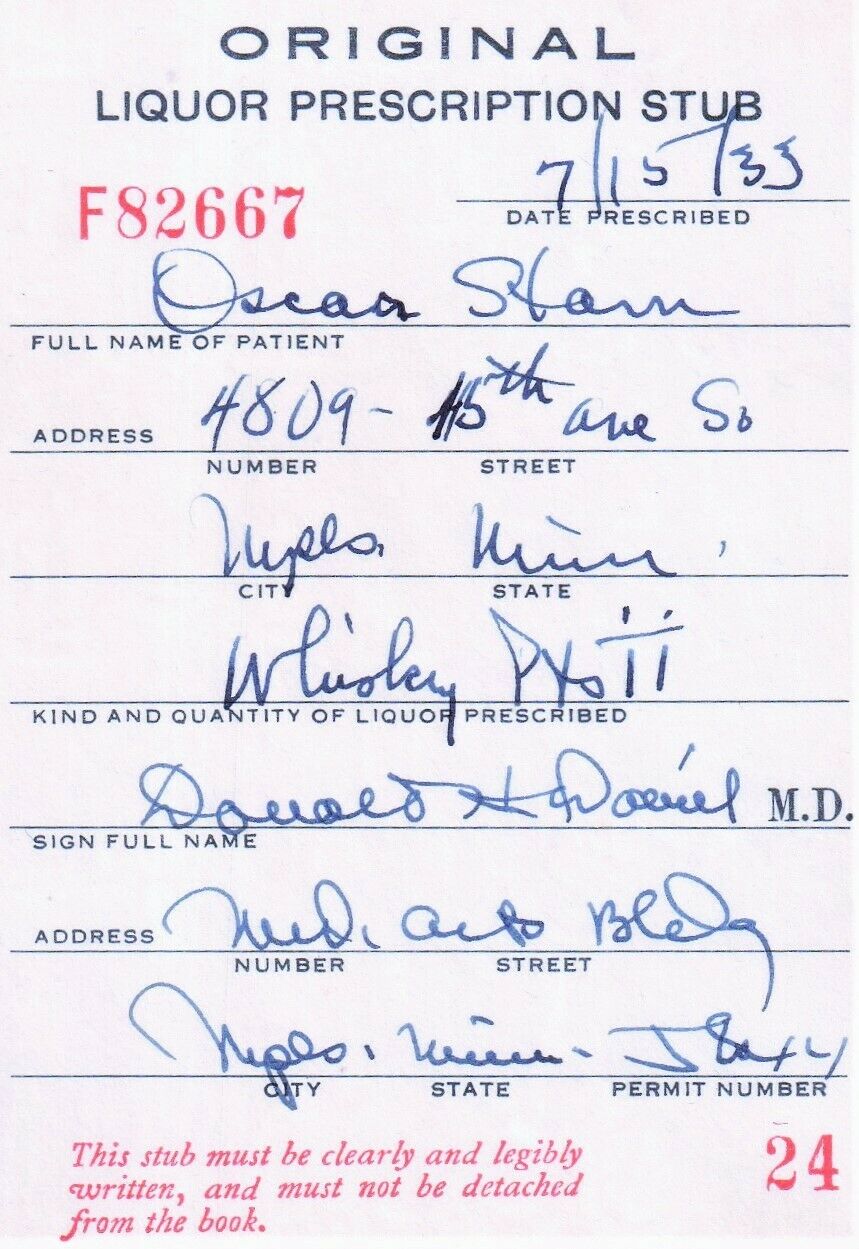 ORIGINAL
LIQUOR PRESCRIPTION STUB
7/15/33
F82667
DATE PRESCRIBED
Oscar
FULL NAME OF PATIENT
ADDRESS 4809- 15th ave So
NUMBER STREET
Mpls. Minn
CITY STATE
Whiskey Pts II
KIND AND QUANTITY OF LIQUOR PRESCRIBED
Donald H Daniel M.D.
SIGN FULL NAME
ADDRESS Med. Arts Bldg
NUMBER STREET
Mpls. Minn.
CITY STATE PERMIT NUMBER
This stub must be clearly and legibly
written, and must not be detached
from the book.
24